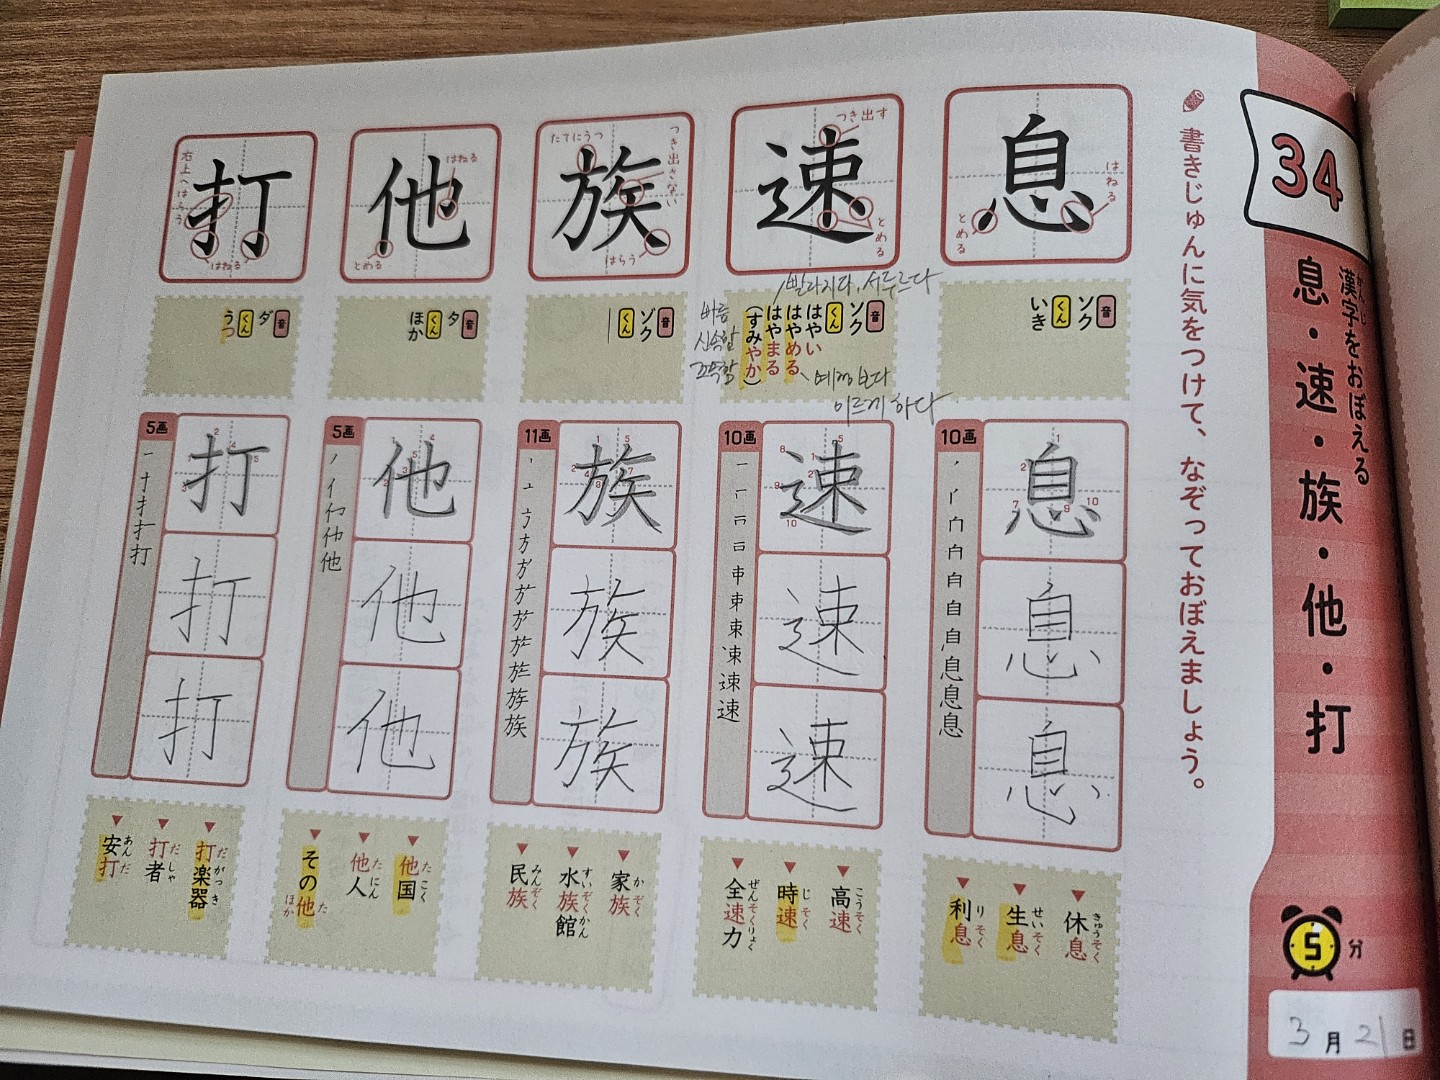 34
漢字をおぼえる
かんじ
息・速・族・他・打
5分
3月21日
書きじゅんに気をつけて、なぞっておぼえましょう。
息
はねる
とめる
音
ソク
くん
いき
10画
息
息
息
休息
きゅうそく
生息
せいそく
利息
りそく
速
つき出す
とめる
빨라지다, 서두르다
音
ソク
くん
はやい
はやめる
はやまる
(すみやか)
예정보다
이르게 하다
빠름
신속함
10画
速
速
速
高速
こうそく
時速
じそく
全速力
ぜんそくりょく
族
たてにうつ
つき出さない
はらう
音
ゾク
くん
11画
族
族
族
家族
かぞく
水族館
すいぞくかん
民族
みんぞく
他
はねる
とめる
音
タ
くん
ほか
5画
他
他
他
他国
たこく
他人
たにん
その他
た
ほか
打
右上へはらう
はねる
音
ダ
くん
うつ
5画
打
打
打
打楽器
だがっき
打者
だしゃ
安打
あんだ